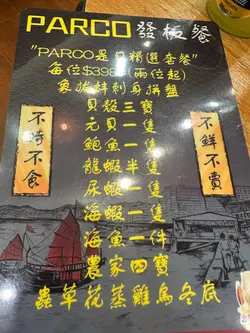 PARCO 發板餐
"PARCO是日精選套餐"
每位$398 (兩位起)
象拔蚌刺身拼盤
貝殼三寶
元貝一隻
鮑魚一隻
龍蝦半隻
尿蝦一隻
海蝦一隻
海魚一件
農家四寶
蟲草花蒸雞烏冬底
不時不食
不鮮不賣